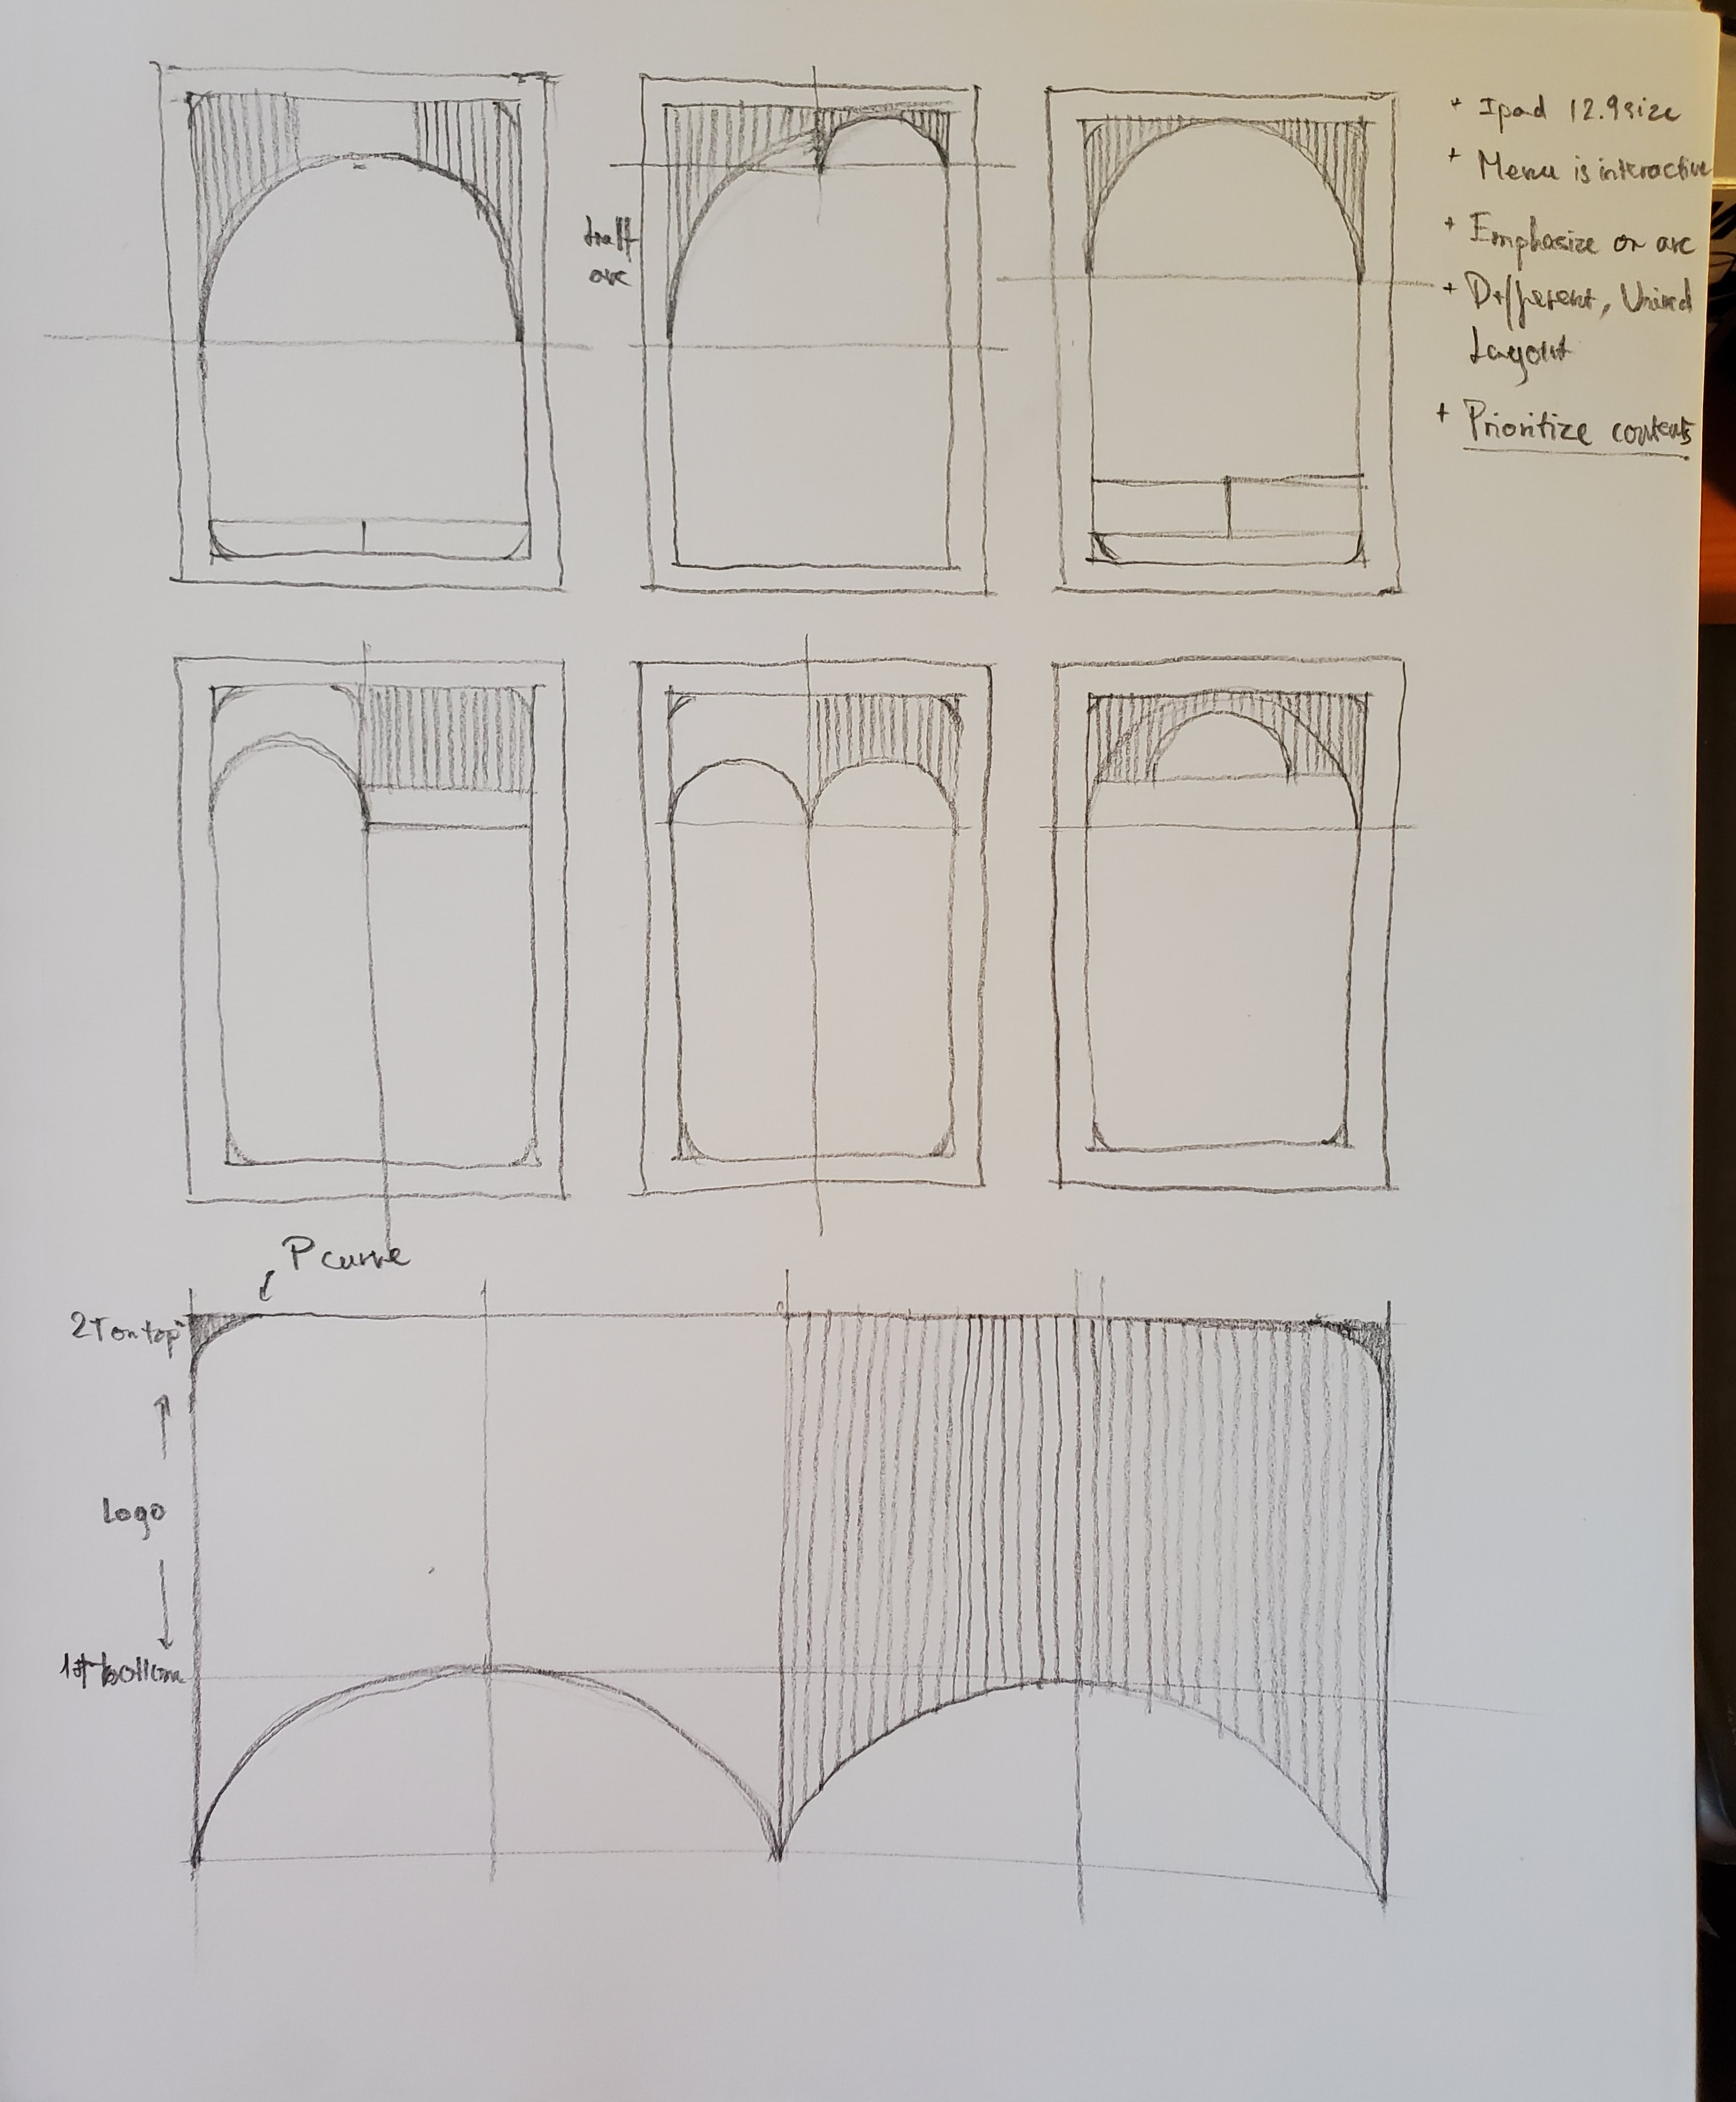 + Ipad 12.9 size
+ Menu is interactive
+ Emphasize on arc
+ Different, Unired
Layout
+ Prioritize contents
half
arc
P curve
2T on top
Logo
1st bottom